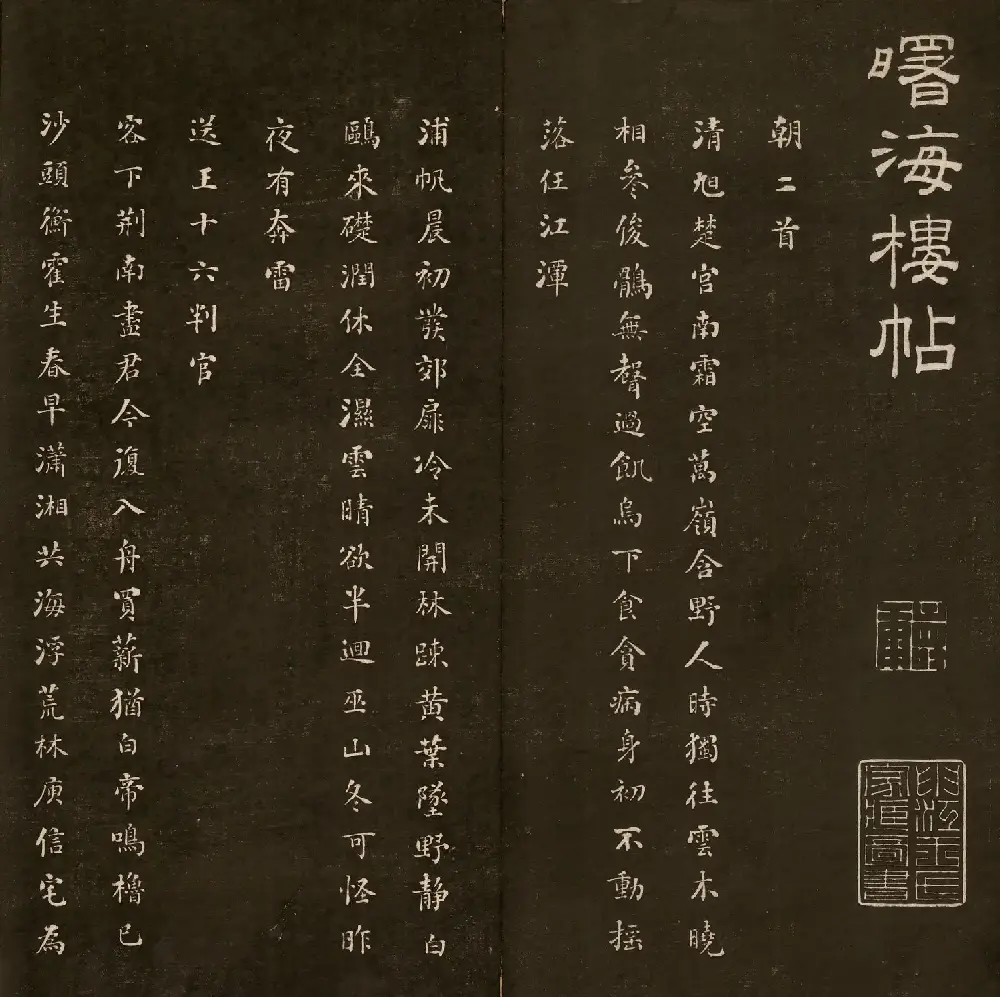 曙海樓帖
朝二首
清旭楚宮南霜空萬嶺含野人時獨往雲木曉
相參俊鶻無聲過飢烏下食貪病身初不動搖
落任江潭
浦帆晨初發郊扉冷未開林疎黃葉墜野静白
鷗來礎潤休全濕雲晴欲半迴巫山冬可怪昨
夜有奔雷
送王十六判官
客下荆南盡君今復入舟買薪猶白帝鳴櫓已
沙頭衡霍生春早瀟湘共海浮荒林庾信宅為